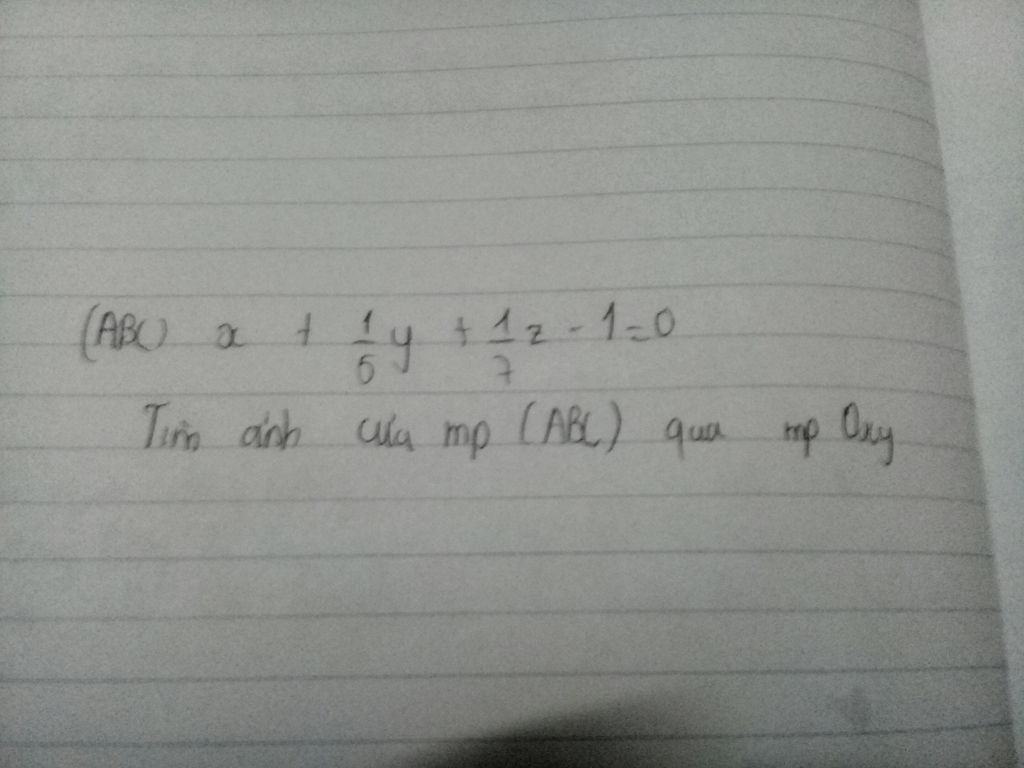 (ABC) x + 1/5 y + 1/7 z - 1 = 0
Tìm ảnh của mp (ABC) qua mp Oxy